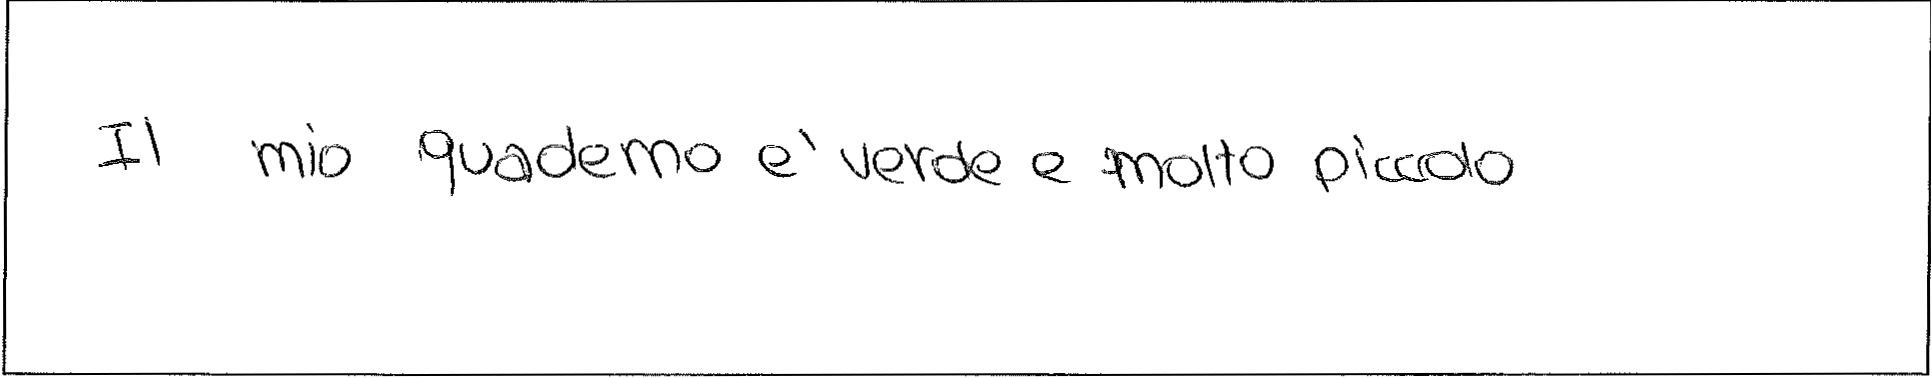 Il mio quaderno e' verde e molto piccolo